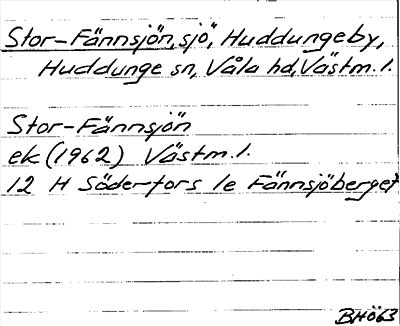 Stor-Fännsjön, sjö, Huddungeby,
Huddunge sn, Våla hd, Västm.l.
Stor-Fännsjön
ek (1962) Västm.l.
12 H Söderfors 1e Fännsjöberget
BHÖ63